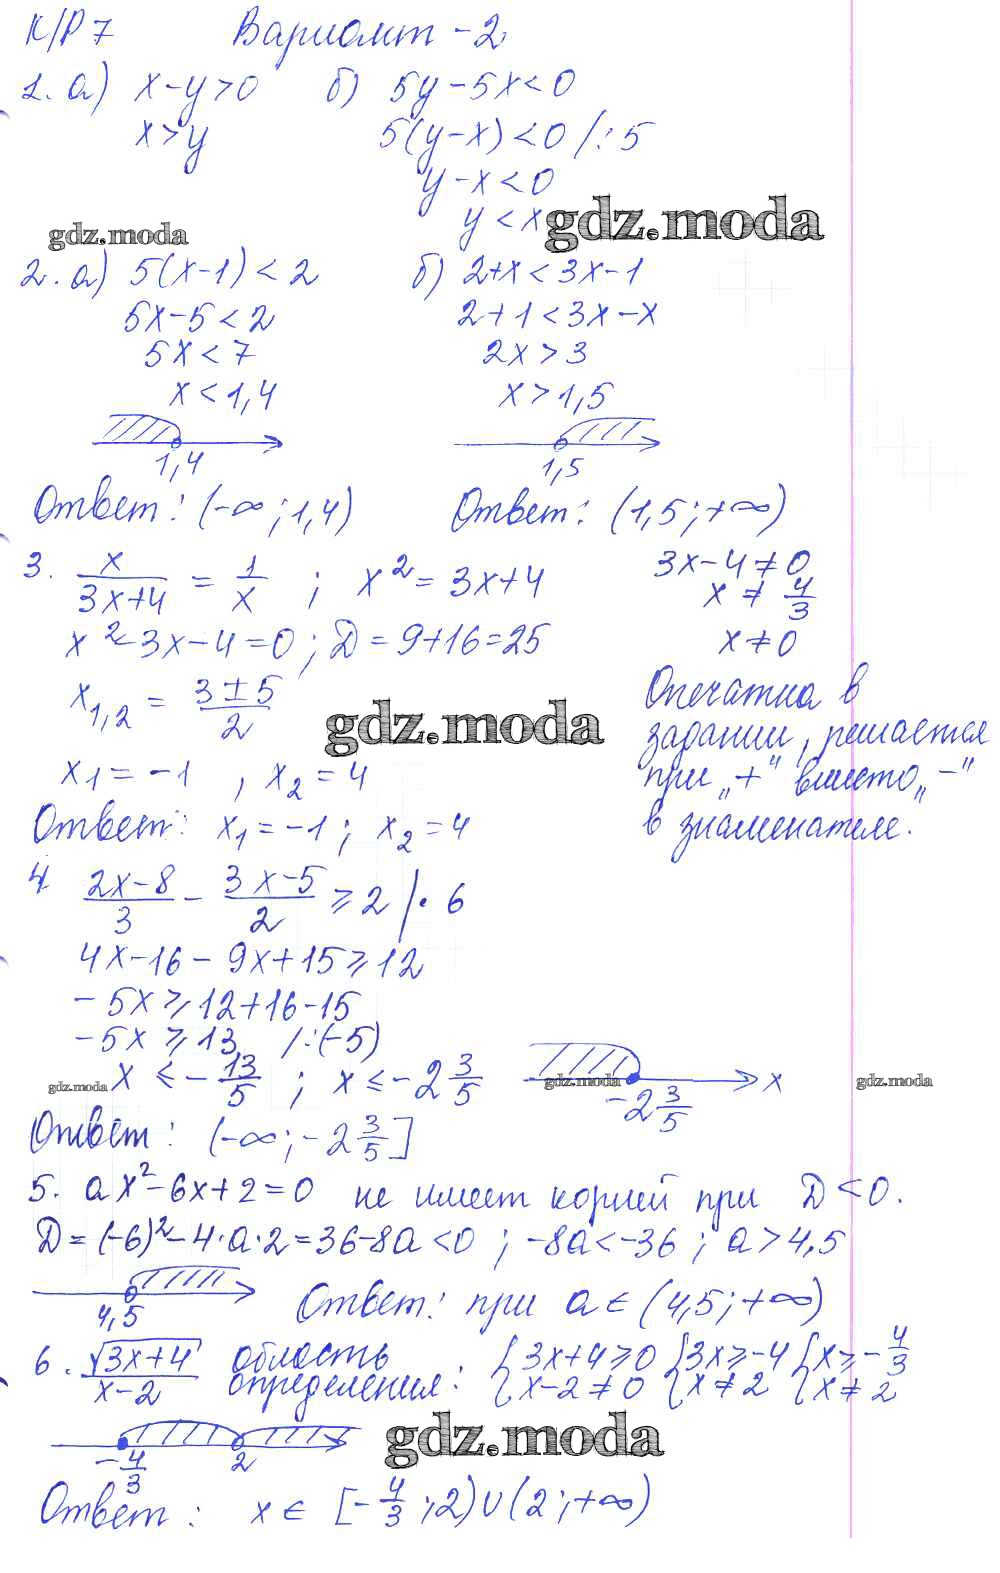 К/Р 7 Вариант - 2.
1. а) x - y > 0 б) 5y - 5x < 0
x > y 5(y - x) < 0 /: 5
y - x < 0
y < x gdz.moda
gdz.moda
2. а) 5(x-1) < 2 б) 2+x < 3x-1
5x-5 < 2 2+1 < 3x-x
5x < 7 2x > 3
x < 1,4 x > 1,5
1,4 1,5
Ответ: (-∞; 1,4) Ответ: (1,5; +∞)
3. x/(3x+4) = 1/x ; x² = 3x+4 3x-4 ≠ 0
x ≠ 4/3
x² - 3x - 4 = 0 ; D = 9+16 = 25 x ≠ 0
x₁,₂ = (3 ± 5)/2 gdz.moda
Опечатка в
задании, решается
x₁ = -1 , x₂ = 4 при „+" вместо „-"
Ответ: x₁ = -1 ; x₂ = 4 в знаменателе.
4 (2x-8)/3 - (3x-5)/2 ≥ 2 /· 6
4x-16 - 9x+15 ≥ 12
-5x ≥ 12+16-15
-5x ≥ 13 /:(-5)
gdz.moda x ≤ -13/5 ; x ≤ -2 3/5 gdz.moda x gdz.moda
-2 3/5
Ответ: (-∞; -2 3/5]
5. ax² - 6x + 2 = 0 не имеет корней при D < 0.
D = (-6)² - 4·a·2 = 36-8a < 0 ; -8a < -36 ; a > 4,5
4,5
Ответ: при a ∈ (4,5; +∞)
6. √(3x+4)/(x-2) область определения: {3x+4 ≥ 0 {3x ≥ -4 {x ≥ -4/3
{x-2 ≠ 0 {x ≠ 2 {x ≠ 2
-4/3 2 gdz.moda
Ответ: x ∈ [-4/3; 2) ∪ (2; +∞)